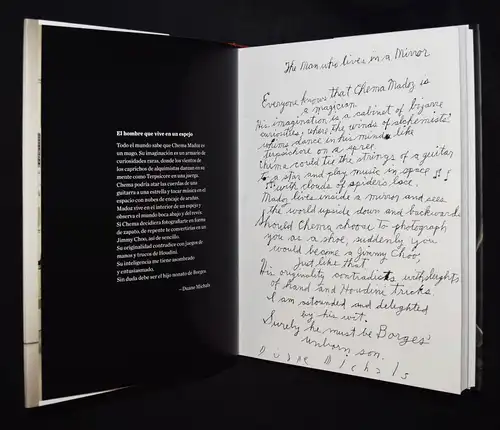 El hombre que vive en un espejo
Todo el mundo sabe que Chema Madoz es
un mago. Su imaginación es un armario de
curiosidades raras, donde los vientos de
los caprichos de alquimistas danzan en su
mente como Terpsícore en una juerga.
Chema podría atar las cuerdas de una
guitarra a una estrella y tocar música en el
espacio con nubes de encaje de arañas.
Madoz vive en el interior de un espejo y
observa el mundo boca abajo y del revés.
Si Chema decidiera fotografiarte en forma
de zapato, de repente te convertirías en un
Jimmy Choo, así de sencillo.
Su originalidad contradice con juegos de
manos y trucos de Houdini.
Su inteligencia me tiene asombrado
y entusiasmado.
Sin duda debe ser el hijo nonato de Borges.
– Duane Michals
The Man who lives in a Mirror
Everyone knows that Chema Madoz is
a magician.
His imagination is a cabinet of bizarre
curiosities, where the winds of alchemests'
whims dance in his mind, like
terpsichore on a spree.
Chema could tie the strings of a guitar
to a star and play music in space
with clouds of spiders lace.
Madoz lives inside a mirror and sees
the world upside down and backwards
Should Chema choose to photograph
you as a shoe, suddenly you
would become a Jimmy Choo,
Just like that
His originality contradicts with sleights
of hand and Houdini tricks.
I am astounded and delighted
by his wit.
Surely he must be Borges'
unborn son.
Duane Michals